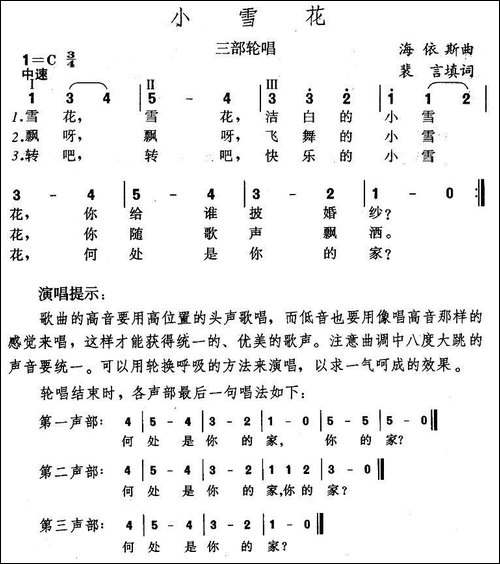 小 雪 花
三部轮唱
1=C 3/4
中速
海 依 斯曲
裴 言填词
Ⅰ Ⅱ Ⅲ
1 3 4 | 5 - 4 | 3 3 2 | 1 1 2 |
1.雪 花, 雪 花, 洁 白 的 小 雪
2.飘 呀, 飘 呀, 飞 舞 的 小 雪
3.转 吧, 转 吧, 快 乐 的 小 雪
3 - 4 | 5 - 4 | 3 - 2 | 1 - 0 :||
花, 你 给 谁 披 婚 纱?
花, 你 随 歌 声 飘 洒。
花, 何 处 是 你 的 家?
演唱提示:
歌曲的高音要用高位置的头声歌唱,而低音也要用像唱高音那样的
感觉来唱,这样才能获得统一的、优美的歌声。注意曲调中八度大跳的
声音要统一。可以用轮换呼吸的方法来演唱,以求一气呵成的效果。
轮唱结束时,各声部最后一句唱法如下:
第一声部: 4 | 5 - 4 | 3 - 2 | 1 - 0 | 5 - 5 | 5 - 0 ||
何 处 是 你 的 家, 你 的 家?
第二声部: 4 | 5 - 4 | 3 - 2 | 1 1 2 | 3 - 0 ||
何 处 是 你 的 家,你 的 家?
第三声部: 4 | 5 - 4 | 3 - 2 | 1 - 0 ||
何 处 是 你 的 家?